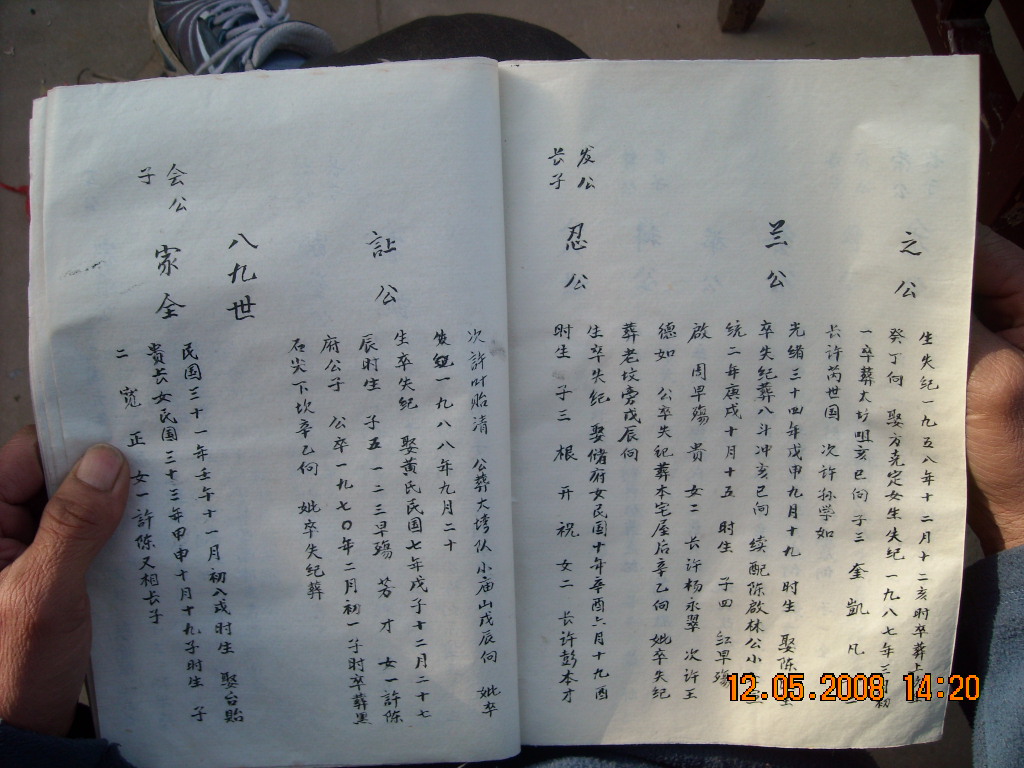 之公
生失纪一九五八年十二月十二亥时卒葬上
癸丁向 娶方克定女生失纪 一九八七年三 初
一卒葬大坊咀亥巳向 子三 奎 凯 凡
长许芮世国 次许孙学如
兰公
光绪三十四年戊甲九月十九 时生 娶陈
卒失纪葬八斗冲亥巳向 续配陈啟林公小
统二年庚戌十月十五 时生 子四 红早殇
啟 周早殇 贵 女二 长许杨永翠 次许王
德如 公卒失纪葬本宅屋后辛乙向 妣卒失纪
葬老坟旁戊辰向
发公
长子
忍公
生卒失纪 娶储府女民国十年辛酉六月十九酉
时生 子三 根 开 祝 女二 长许彭本才
次許叶贻清 公葬大塆仏小庙山戌辰向 妣卒
一九八八年九月二十
訟公
生卒失纪 娶黄氏民国七年戊子十二月二十七
辰时生 子五 一二三早殇 芳 才 女一許陈
府公子 公卒一九七〇年二月初一子时卒葬黑
石尖下坎辛乙向 妣卒失纪葬
八九世
会公
子
家全
民国三十一年壬午十一月初八戌时生 娶台贻
贵长女民国三十三年甲申十月十九子时生 子
二 宽 正 女一許陈又相长子
12.05.2008 14:20